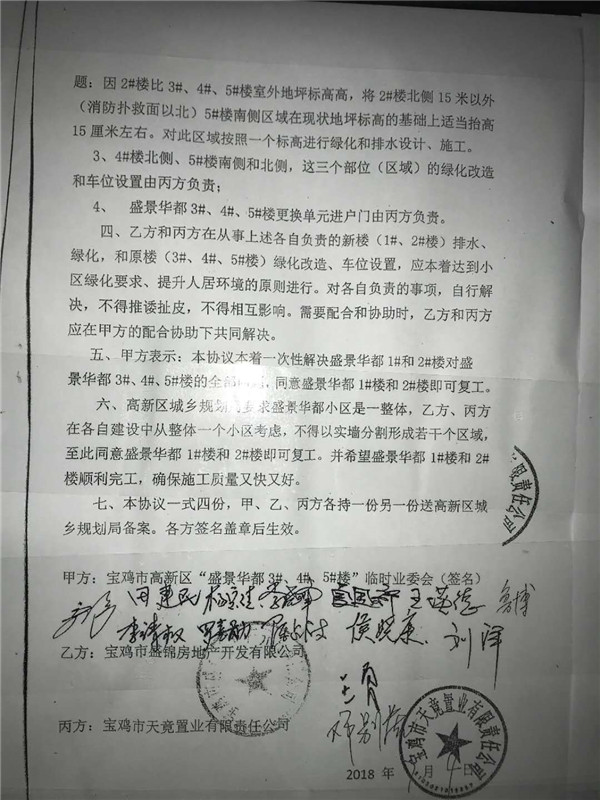 题：因2#楼比3#、4#、5#楼室外地坪标高高，将2#楼北侧15米以外
（消防扑救面以北）5#楼南侧区域在现状地坪标高的基础上适当抬高
15厘米左右。对此区域按照一个标高进行绿化和排水设计、施工。
3、4#楼北侧、5#楼南侧和北侧，这三个部位（区域）的绿化改造
和车位设置由丙方负责；
4、 盛景华都3#、4#、5#楼更换单元进户门由丙方负责。
四、乙方和丙方在从事上述各自负责的新楼（1#、2#楼）排水、
绿化，和原楼（3#、4#、5#楼）绿化改造、车位设置，应本着达到小
区绿化要求、提升人居环境的原则进行。对各自负责的事项，自行解
决，不得推诿扯皮，不得相互影响。需要配合和协助时，乙方和丙方
应在甲方的配合协助下共同解决。
五、甲方表示：本协议本着一次性解决盛景华都1#和2#楼对盛
景华都3#、4#、5#楼的全部 同意盛景华都1#楼和2#楼即可复工。
六、高新区城乡规划 要求盛景华都小区是一整体，乙方、丙方
在各自建设中从整体一个小区考虑，不得以实墙分割形成若干个区域，
至此同意盛景华都1#楼和2#楼即可复工。并希望盛景华都1#楼和2#
楼顺利完工，确保施工质量又快又好。
七、本协议一式四份，甲、乙、丙方各持一份另一份送高新区城
乡规划局备案。各方签名盖章后生效。
限责任公司
甲方：宝鸡市高新区“盛景华都3#、4#、5#楼”临时业委会（签名）
田建民 王 德 鲁博
李 权 侯晓 刘洋
乙方：宝鸡市盛锦房地产开发有限公司
丙方：宝鸡市天竟置业有限责任公司
宝鸡市天竟置业有限责任公司
2018 年 月 4 日